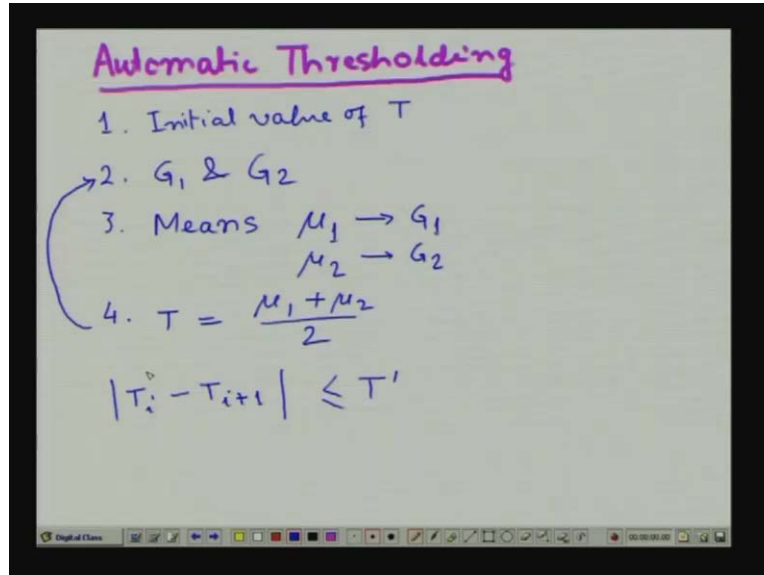 Automatic Thresholding
1. Initial value of T
2. G₁ & G₂
3. Means μ₁ → G₁
μ₂ → G₂
4. T = (μ₁ + μ₂) / 2
|Tᵢ - Tᵢ₊₁| ≤ T'
Digital Class
00:00:00.00